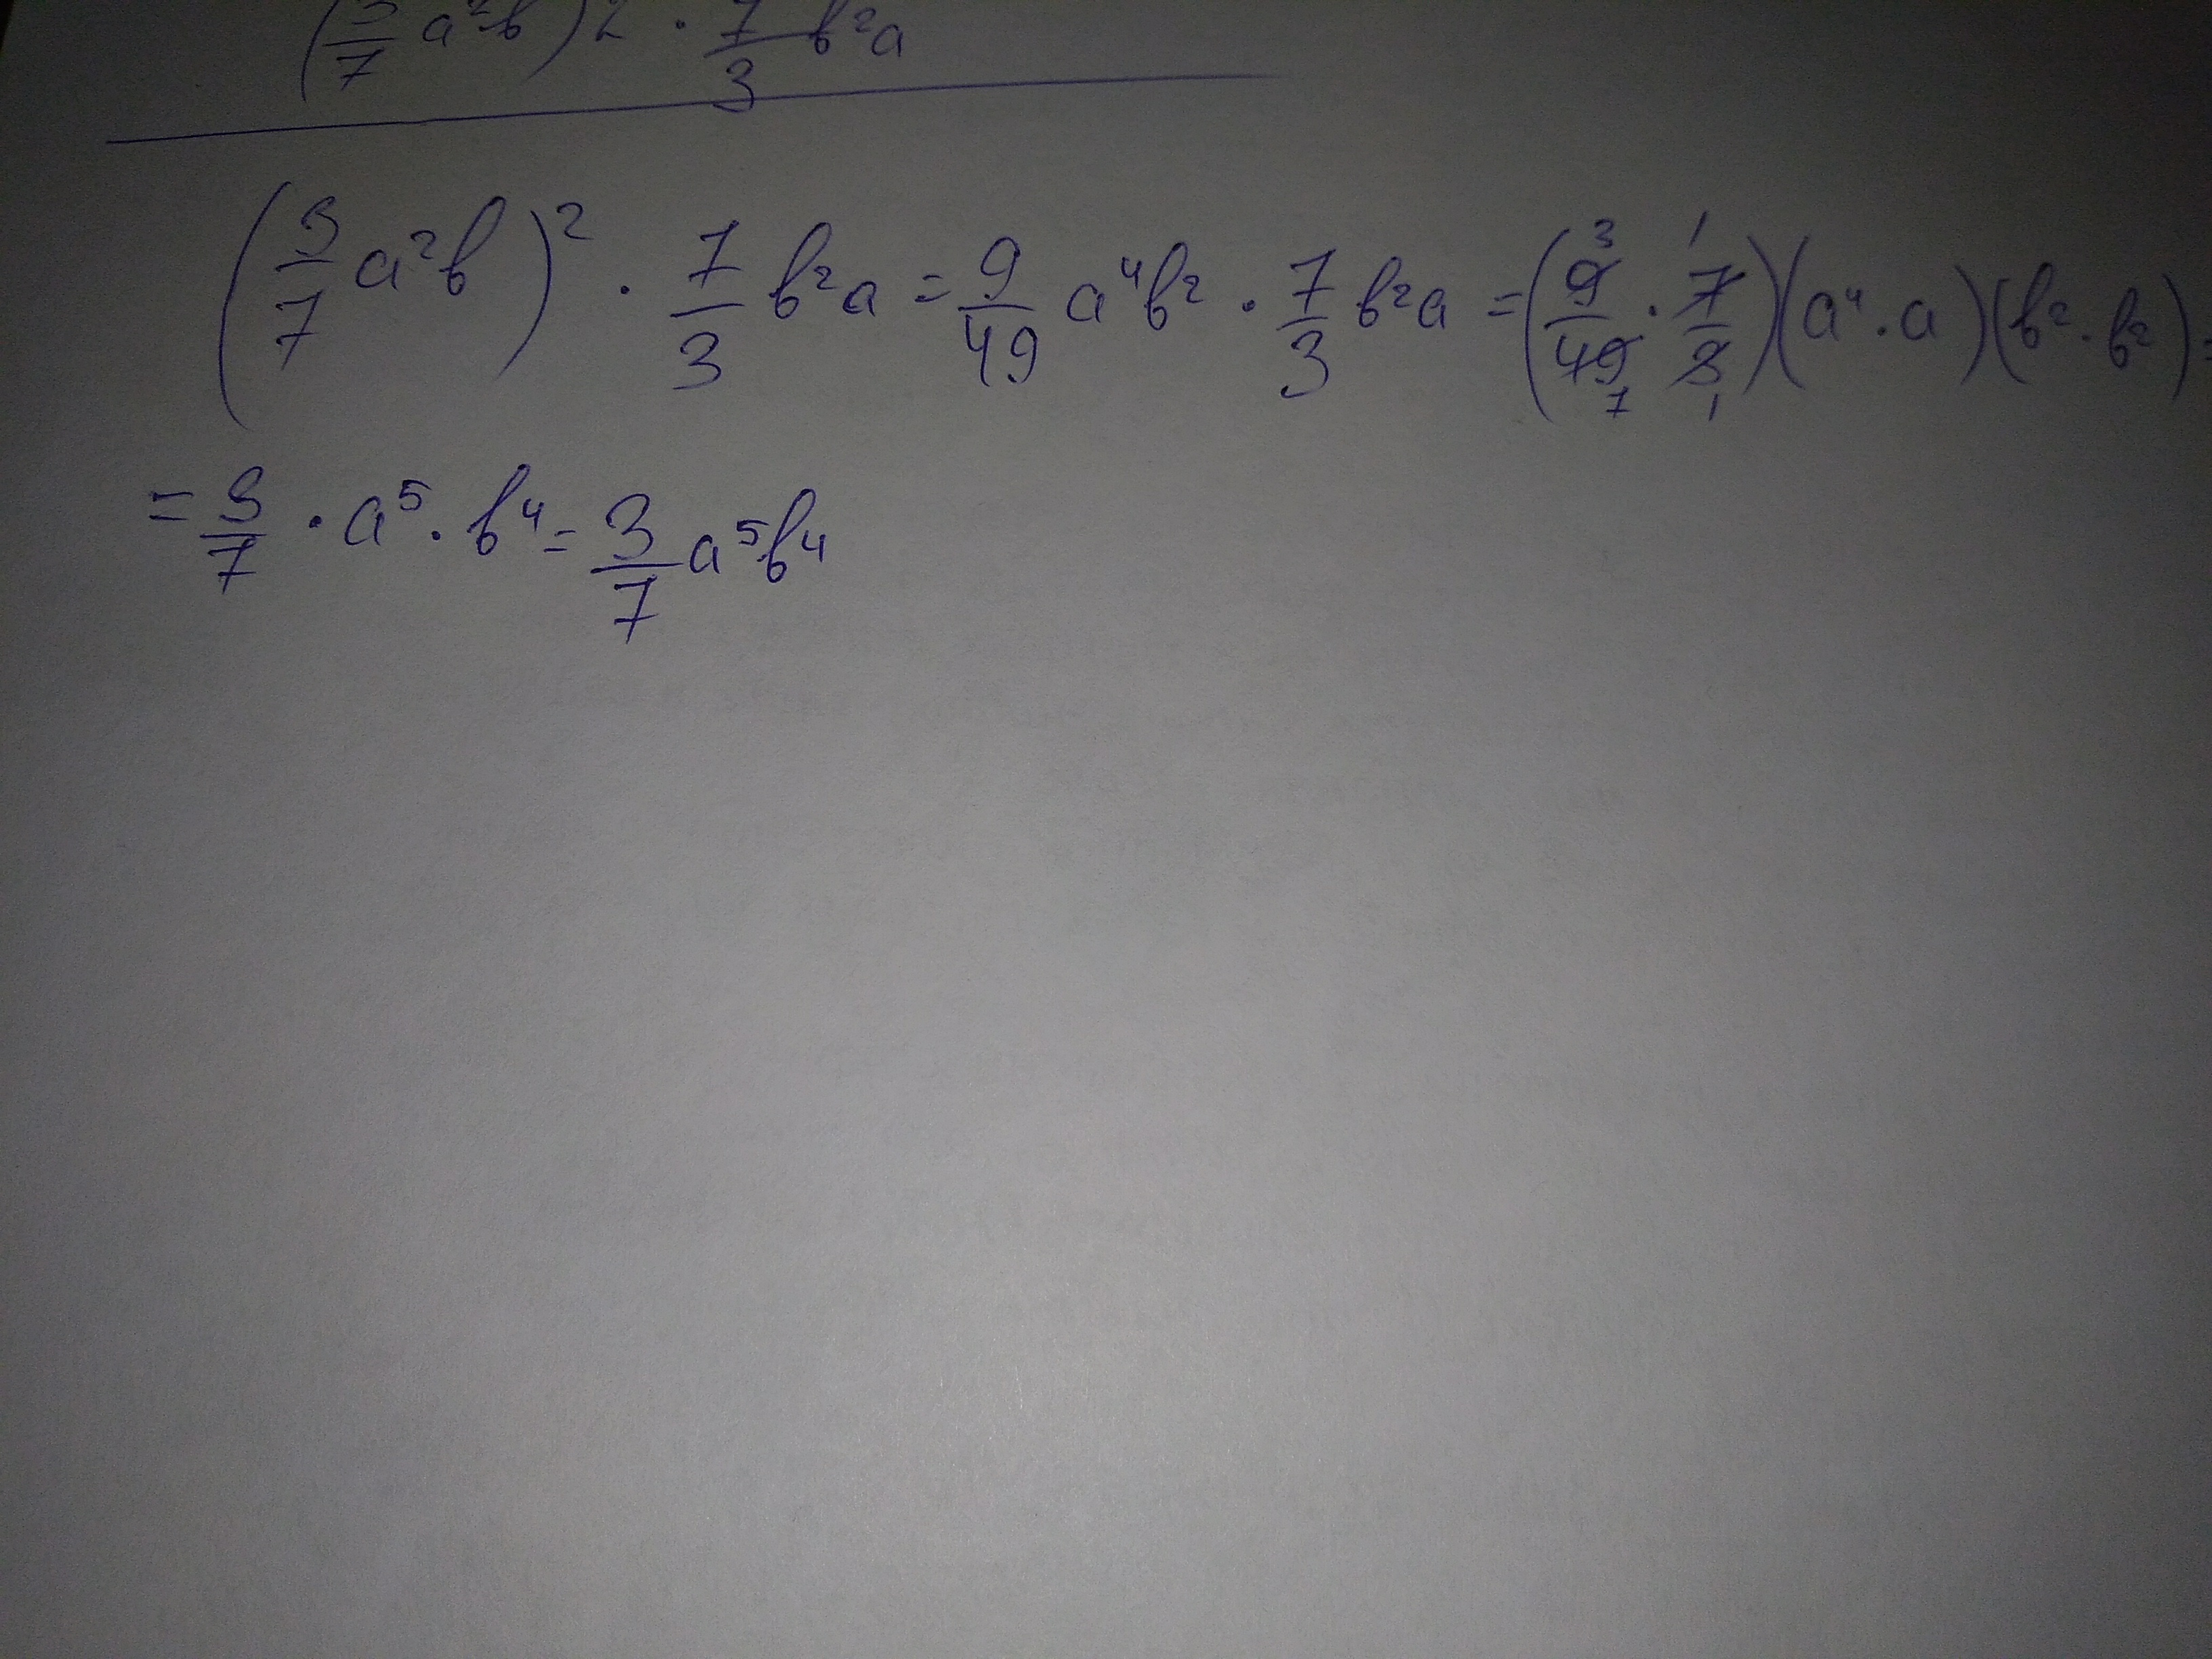 (3/7 a²b)² · 7/3 b²a
(3/7 a²b)² · 7/3 b²a = 9/49 a⁴b² · 7/3 b²a = (9/49 · 7/3)(a⁴ · a)(b² · b²) =
= 3/7 · a⁵ · b⁴ = 3/7 a⁵b⁴